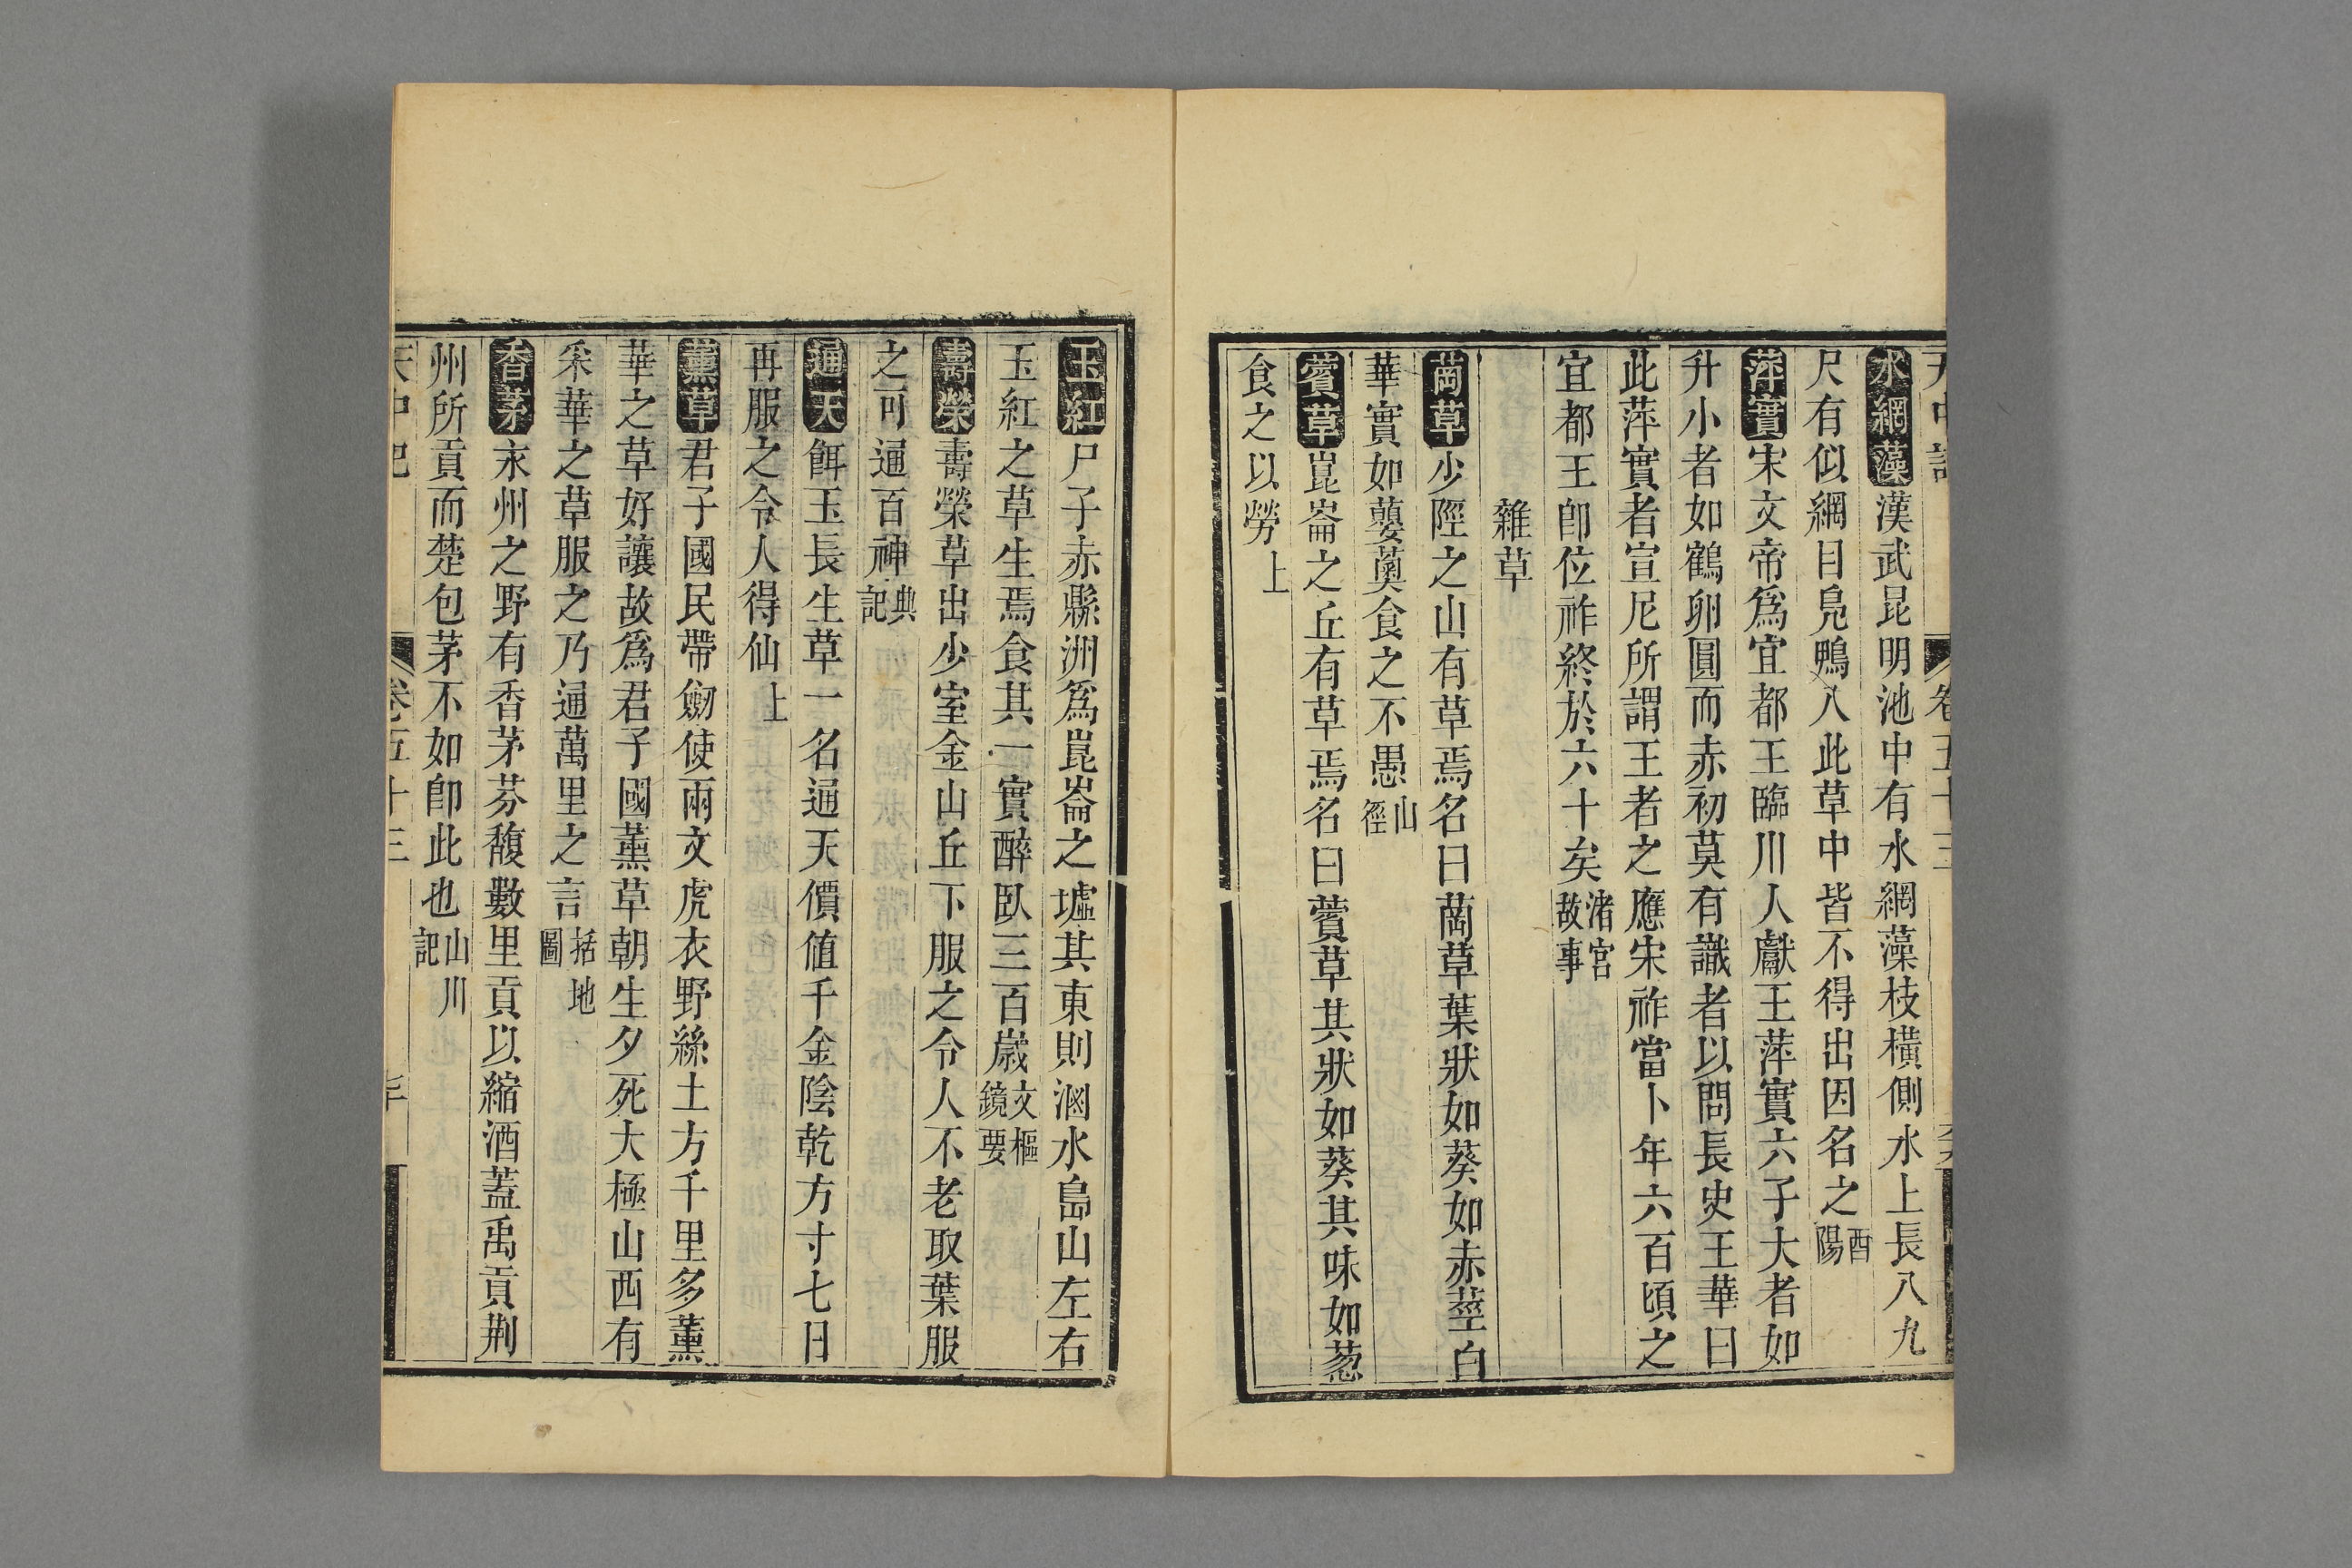 水網藻漢武昆明池中有水網藻枝橫側水上長八九
尺有似網目鳧鴨入此草中皆不得出因名之酉陽
萍實宋文帝爲宜都王臨川人獻王萍實六子大者如
升小者如鶴卵圓而赤初莫有識者以問長史王華曰
此萍實者宣尼所謂王者之應宋祚當卜年六百頃之
宜都王卽位祚終於六十矣渚宮故事
雜草
䔄草少陘之山有草焉名曰䔄草葉狀如葵如赤莖白
華實如蘡薁食之不愚山經
薲草崑崙之丘有草焉名曰薲草其狀如葵其味如葱
食之以勞上
玉紅尸子赤縣洲爲崑崙之墟其東則滷水島山左右
玉紅之草生焉食其一實醉臥三百歲文樞鏡要
壽榮壽榮草出少室金山丘下服之令人不老取葉服
之可通百神典記
通天餌玉長生草一名通天價值千金陰乾方寸七日
再服之令人得仙上
薰草君子國民帶劒使兩文虎衣野絲土方千里多薰
華之草好讓故爲君子國薰草朝生夕死大極山西有
采華之草服之乃通萬里之言括地圖
香茅永州之野有香茅芬馥數里貢以縮酒蓋禹貢荆
州所貢而楚包茅不如卽此也山川記
天中記 卷五十三